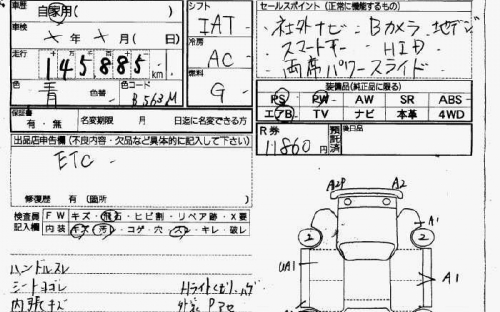 車歴 自家用( ) シフト IAT セールスポイント(正常に機能するもの)
車検 年 月( 日) 冷房 AC 社外ナビ Bカメラ 地デジ
スマートキー HID
走行 145885 km 燃料 G 両席パワースライド
色 青 色替 色コード B563M
装備品(純正品に限る)
PS PW AW SR ABS
エアB TV ナビ 本革 4WD
保証書 有・無 名変期限 月 日迄に名変できる方
R券 11860円 預託済 後日品
出品店申告欄(不良内容・欠品など具体的に記入して下さい)
ETC
修復歴 有(箇所
検査員記入欄 FW キズ・飛石・ヒビ割・リペア跡・X要
内装 キズ・汚レ・コゲ・穴・スレ・キレ・破レ
ハンドルスレ
シートヨゴレ
内張キズ
A2P A2
A1
2 2
UA1 A1
A1